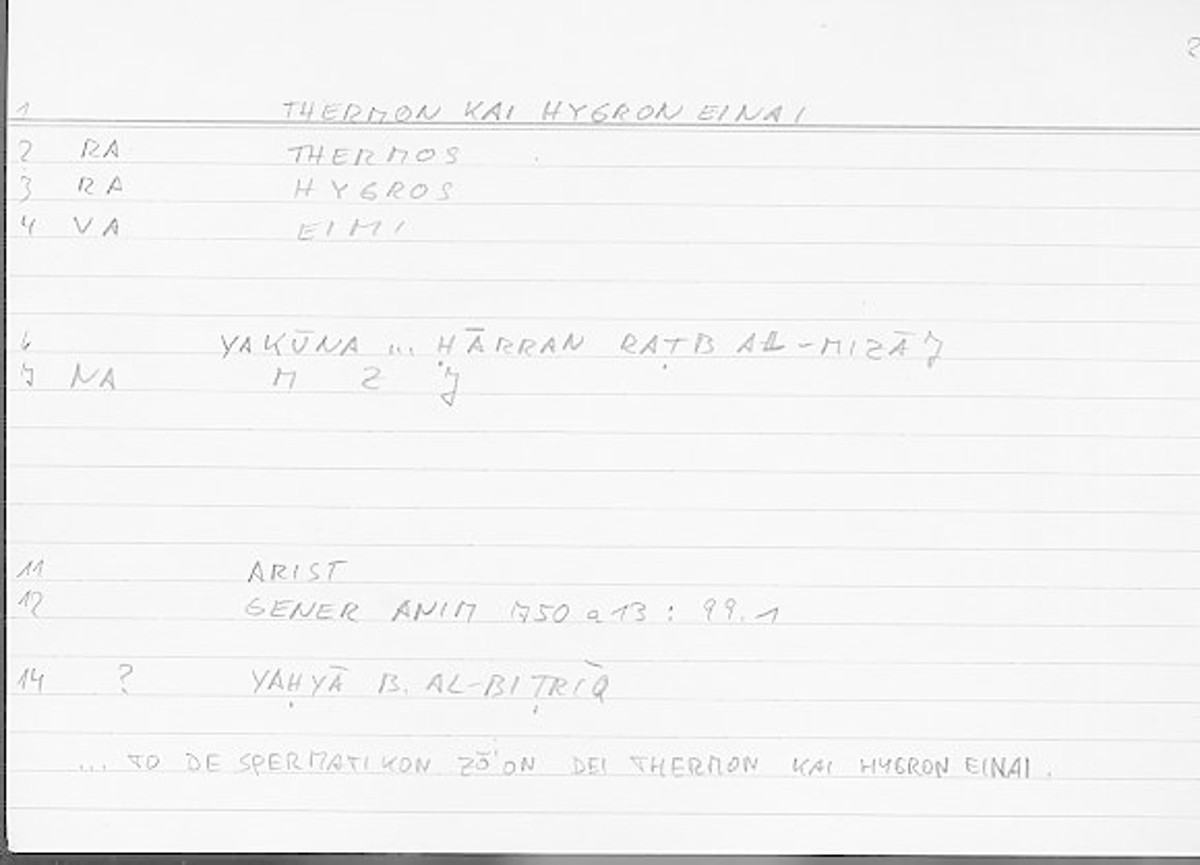 2
1 THERMON KAI HYGRON EINAI
2 RA THERMOS
3 RA HYGROS
4 VA EIMI
6 YAKŪNA ... ḤĀRRAN RAṬB AL-MIZĀJ
7 NA M Z J
11 ARIST
12 GENER ANIM 750 a 13 : 99.1
14 ? YAḤYĀ B. AL-BIṬRĪQ
... TO DE SPERMATIKON ZŌ'ON DEI THERMON KAI HYGRON EINAI .